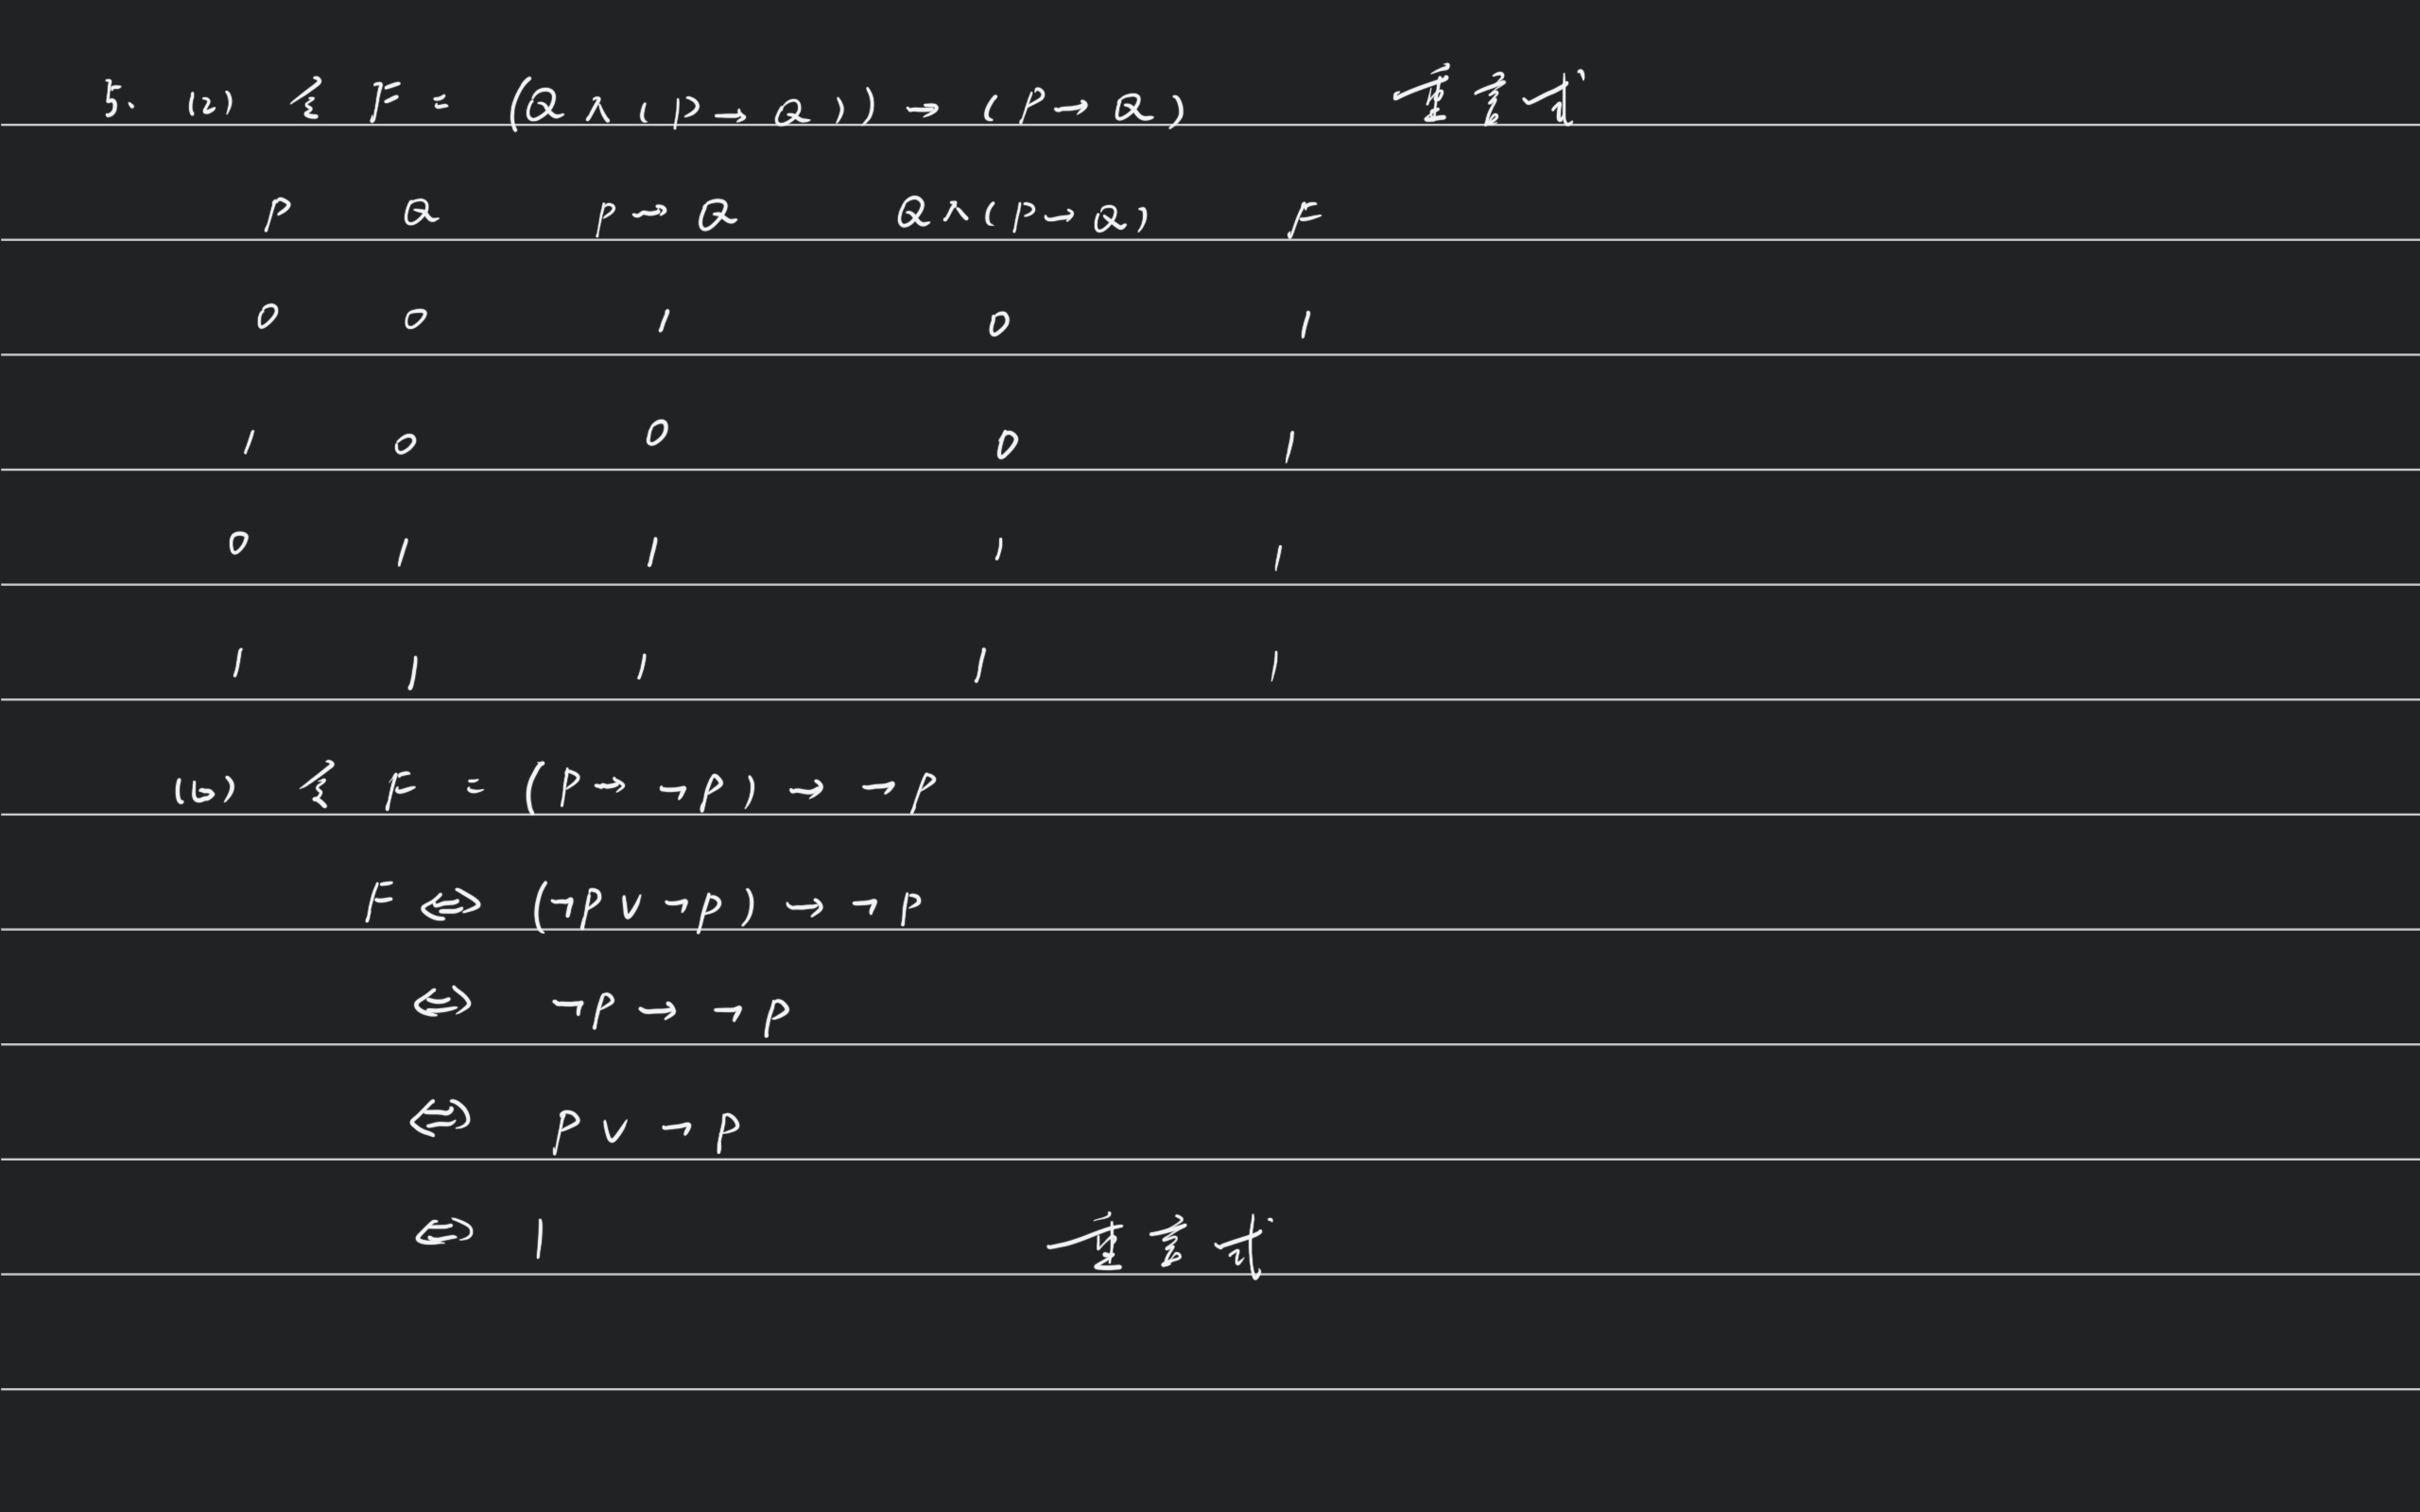 5. (2) 令 F = (Q ∧ (P → Q)) → (P → Q) 重言式
P Q P → Q Q ∧ (P → Q) F
0 0 1 0 1
1 0 0 0 1
0 1 1 1 1
1 1 1 1 1
(6) 令 F = (P → ¬P) → ¬P
F ⇔ (¬P ∨ ¬P) → ¬P
⇔ ¬P → ¬P
⇔ P ∨ ¬P
⇔ 1 重言式